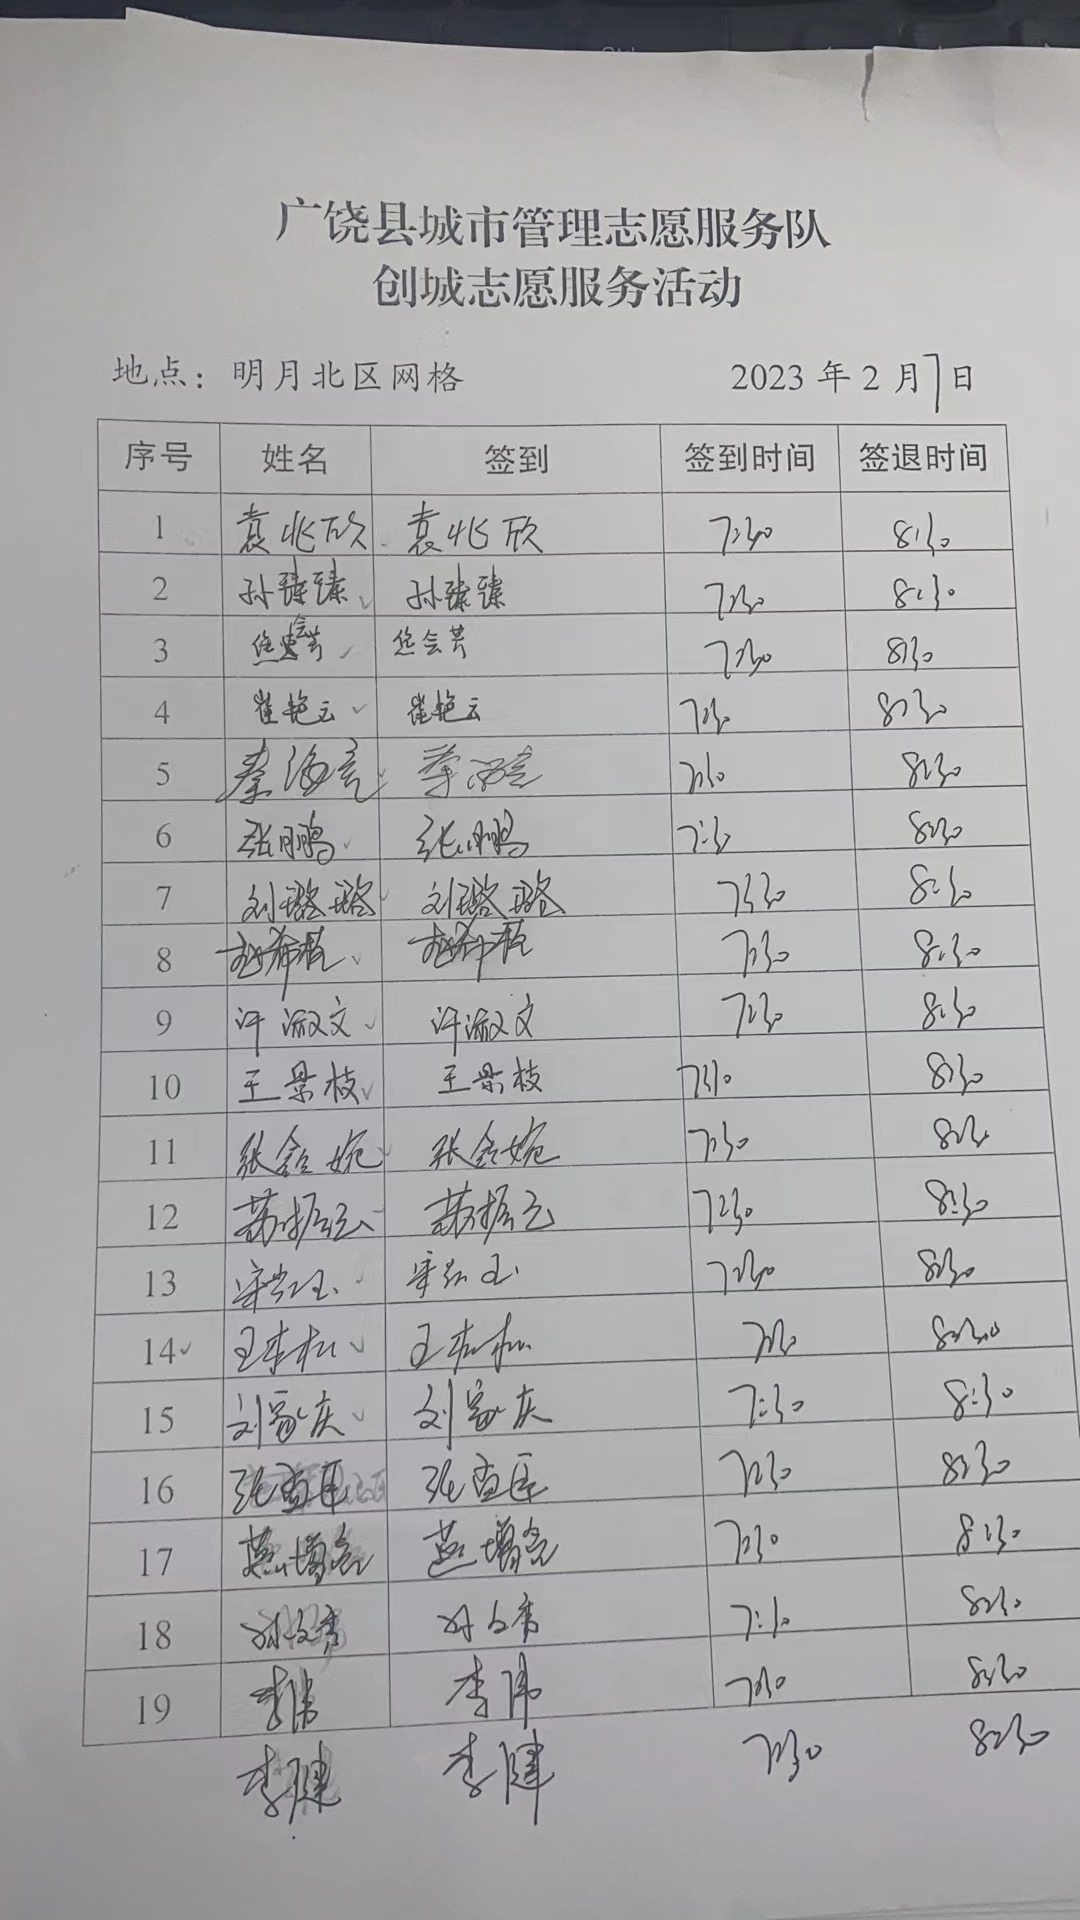 广饶县城市管理志愿服务队
创城志愿服务活动
地点：明月北区网格 2023 年 2 月 7 日
序号 姓名 签到 签到时间 签退时间
1 袁兆欣 袁兆欣 7:30 8:30
2 孙臻臻 孙臻臻 7:30 8:30
3 7:30 8:30
4 崔艳云 崔艳云 7:30 8:30
5 秦海亮 秦海亮 7:30 8:30
6 张鹏 张鹏 7:30 8:30
7 刘璐璐 刘璐璐 7:30 8:30
8 7:30 8:30
9 许淑文 许淑文 7:30 8:30
10 王景枝 王景枝 7:30 8:30
11 张鑫婉 张鑫婉 7:30 8:30
12 7:30 8:30
13 7:30 8:30
14 7:30 8:30
15 刘家庆 刘家庆 7:30 8:30
16 7:30 8:30
17 燕增亮 燕增亮 7:30 8:30
18 7:30 8:30
19 李伟 李伟 7:30 8:30
李健 李健 7:30 8:30